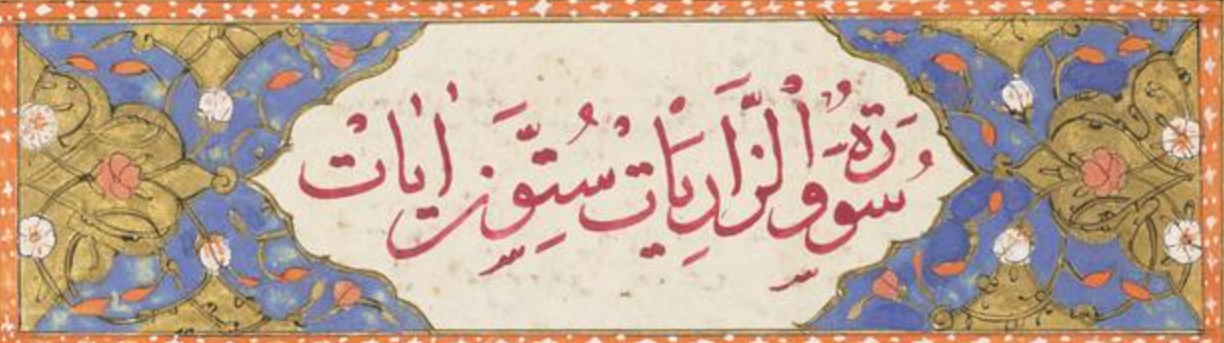 سُورَةُ وَالزَّارِيَاتِ سِتُّونَ اٰيَات